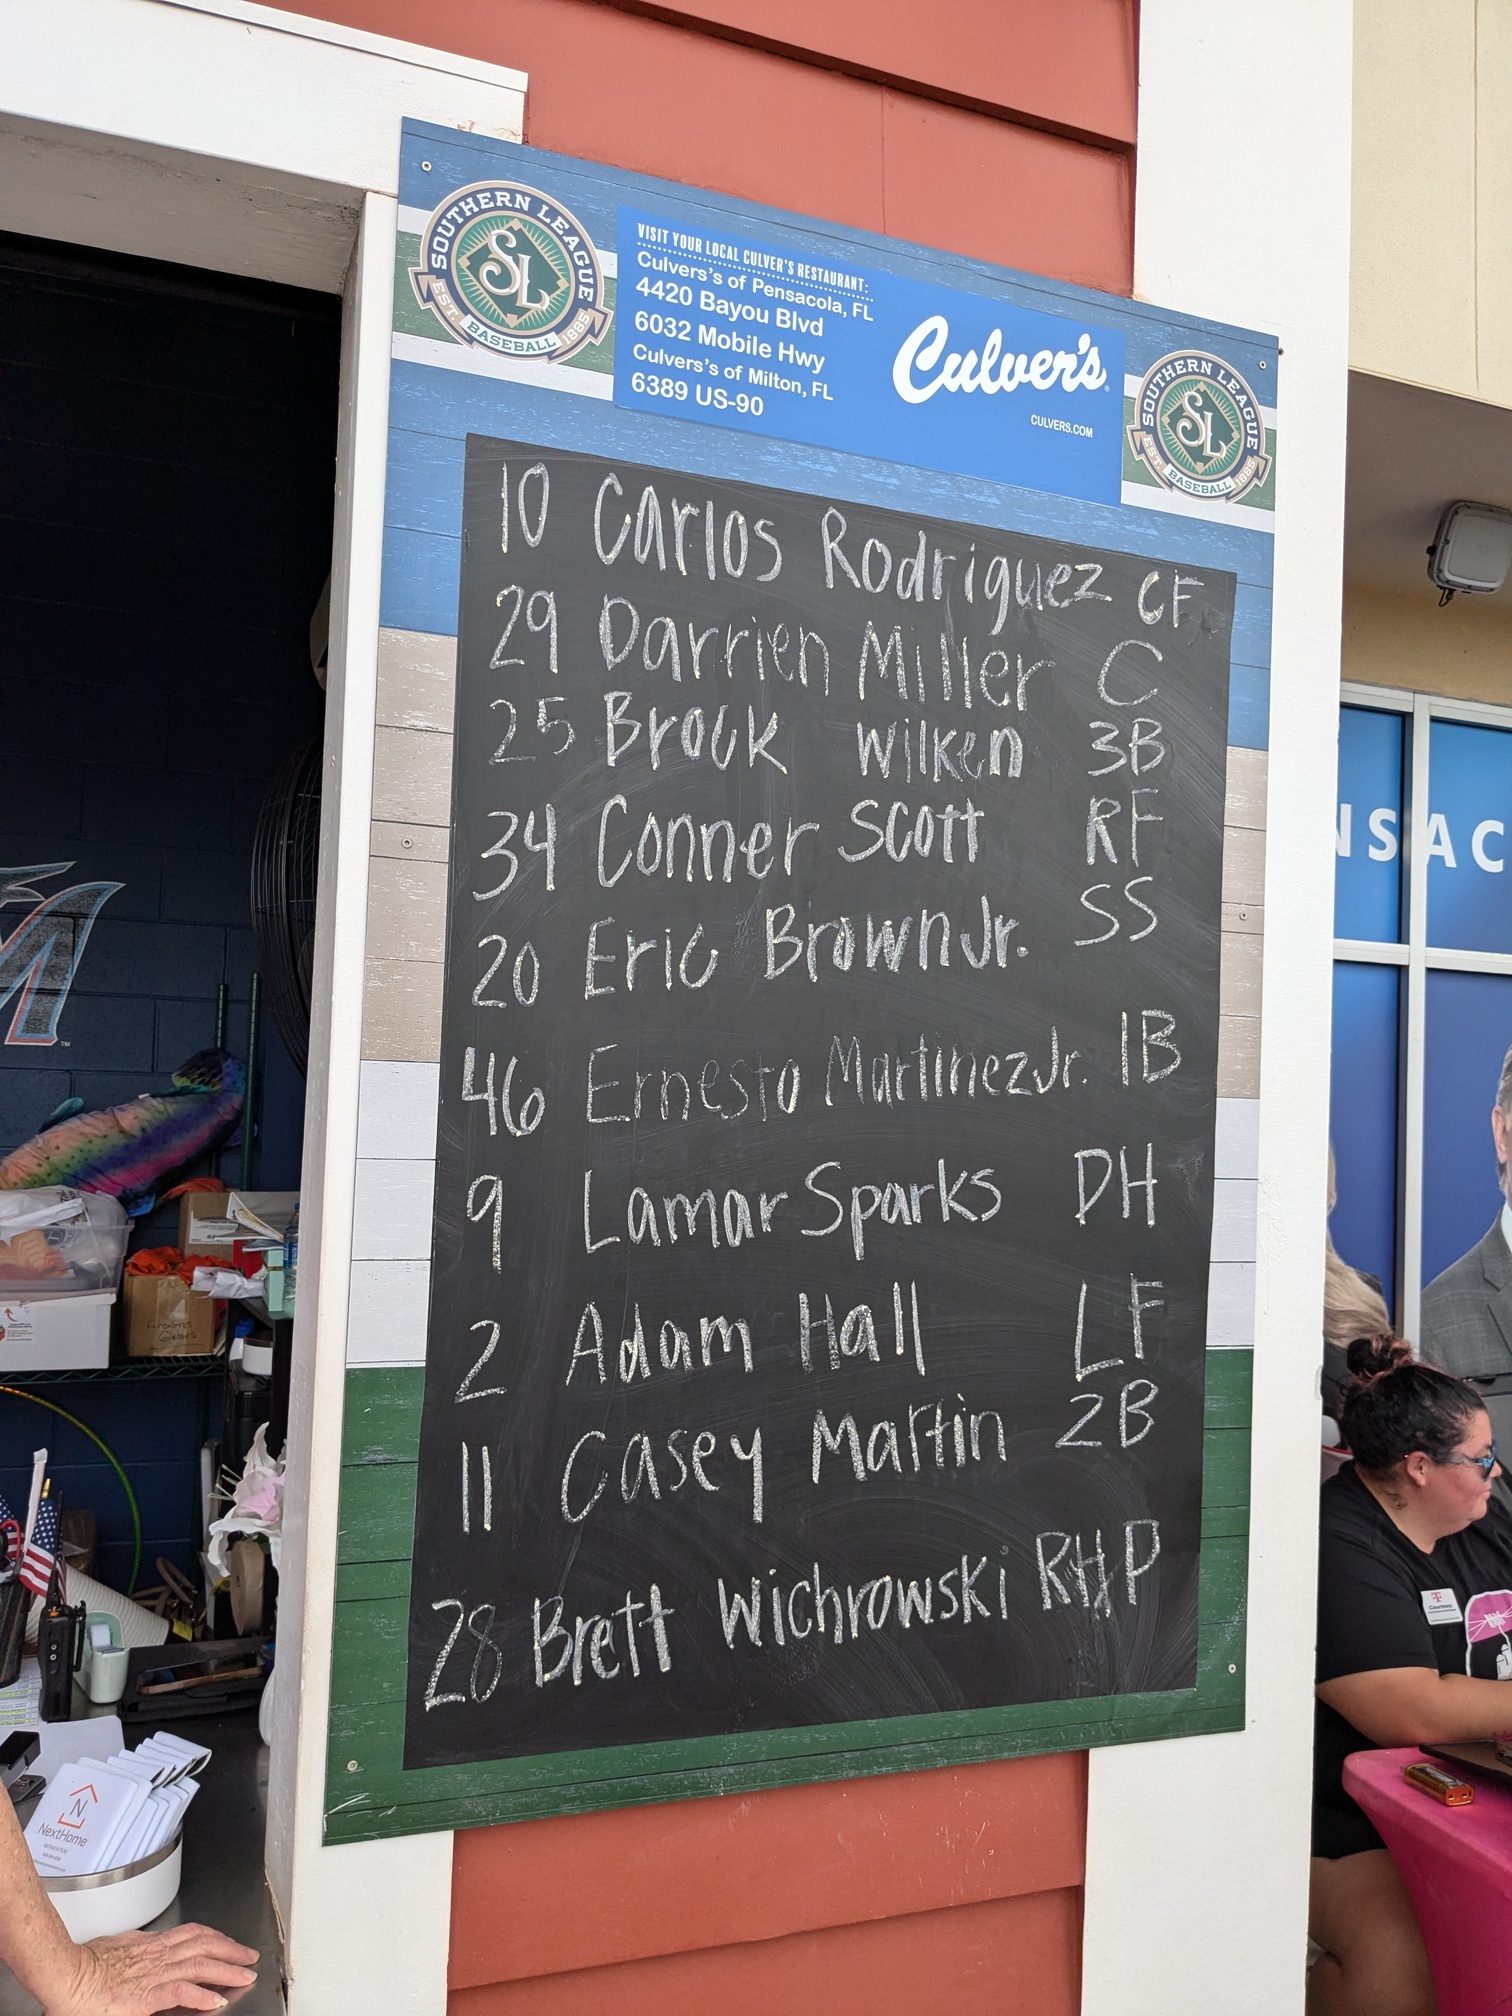 SOUTHERN LEAGUE
SL
EST. 1885
BASEBALL
VISIT YOUR LOCAL CULVER'S RESTAURANT:
Culvers's of Pensacola, FL
4420 Bayou Blvd
6032 Mobile Hwy
Culvers's of Milton, FL
6389 US-90
Culver's
CULVERS.COM
SOUTHERN LEAGUE
SL
EST. 1885
BASEBALL
10 Carlos Rodriguez CF
29 Darrien Miller C
25 Brock Wilken 3B
34 Conner Scott RF
20 Eric Brown Jr. SS
46 Ernesto Martinez Jr. 1B
9 Lamar Sparks DH
2 Adam Hall LF
11 Casey Martin 2B
28 Brett Wichrowski RHP
NSAC
M
TM
N
NextHome
T
Courtney